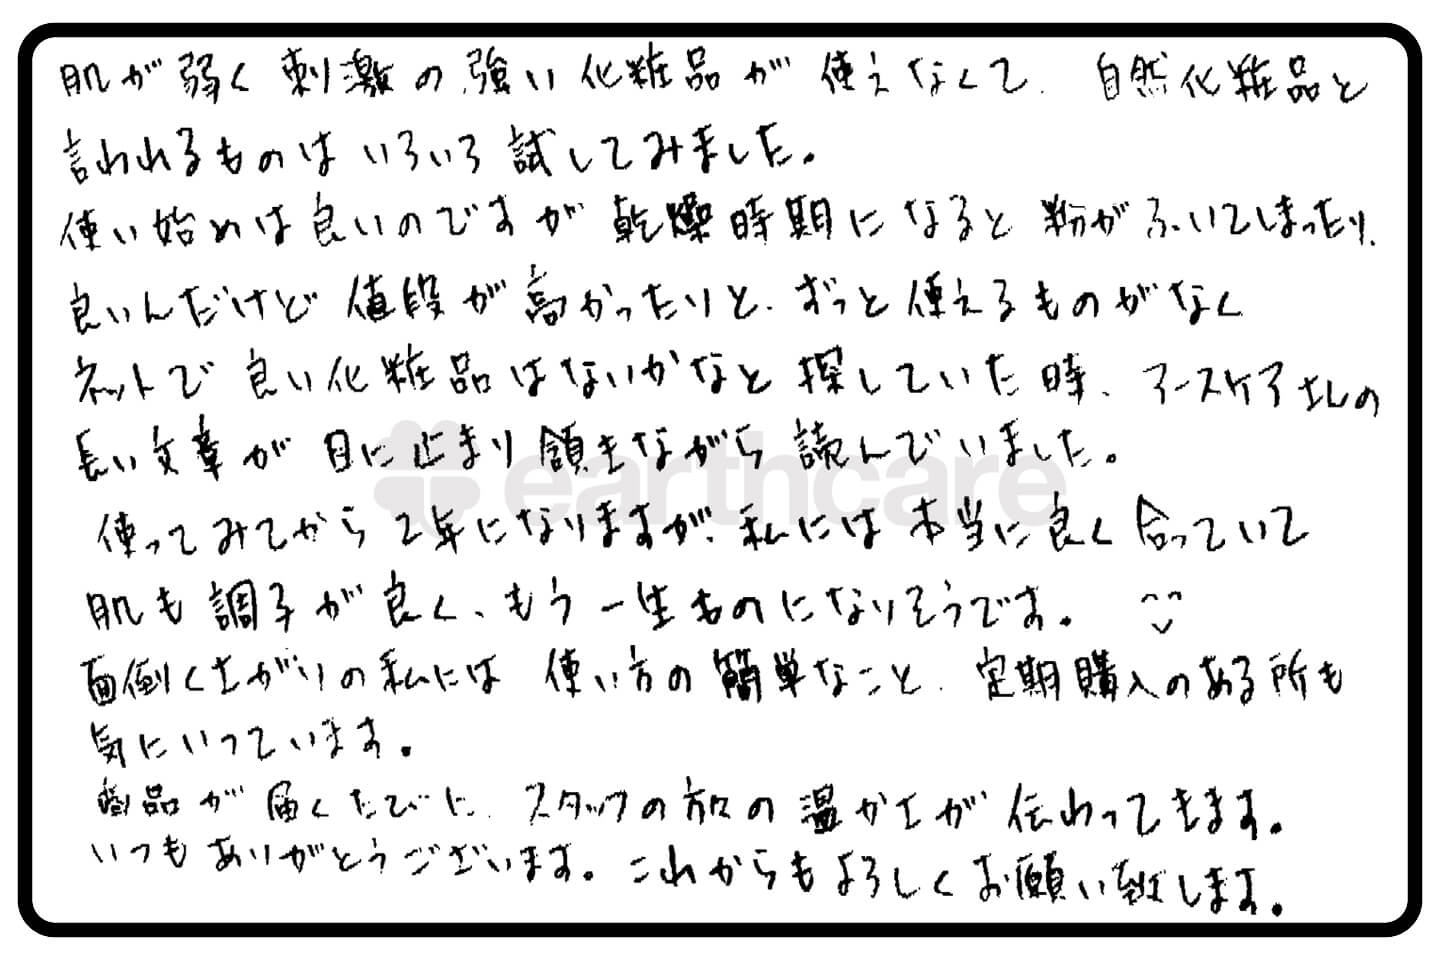 肌が弱く刺激の強い化粧品が使えなくて、自然化粧品と
言われるものはいろいろ試してみました。
使い始めは良いのですが乾燥時期になると粉がふいてしまったり、
良いんだけど値段が高かったりと、ずっと使えるものがなく
ネットで良い化粧品はないかなと探していた時、アースケアさんの
長い文章が目に止まり頷きながら読んでいました。
earthcare
使ってみてから2年になりますが、私には本当に良く合っていて
肌も調子が良く、もう一生ものになりそうです。
面倒くさがりの私には使い方の簡単なこと、定期購入のある所も
気にいっています。
商品が届くたびに、スタッフの方々の温かさが伝わってきます。
いつもありがとうございます。これからもよろしくお願い致します。